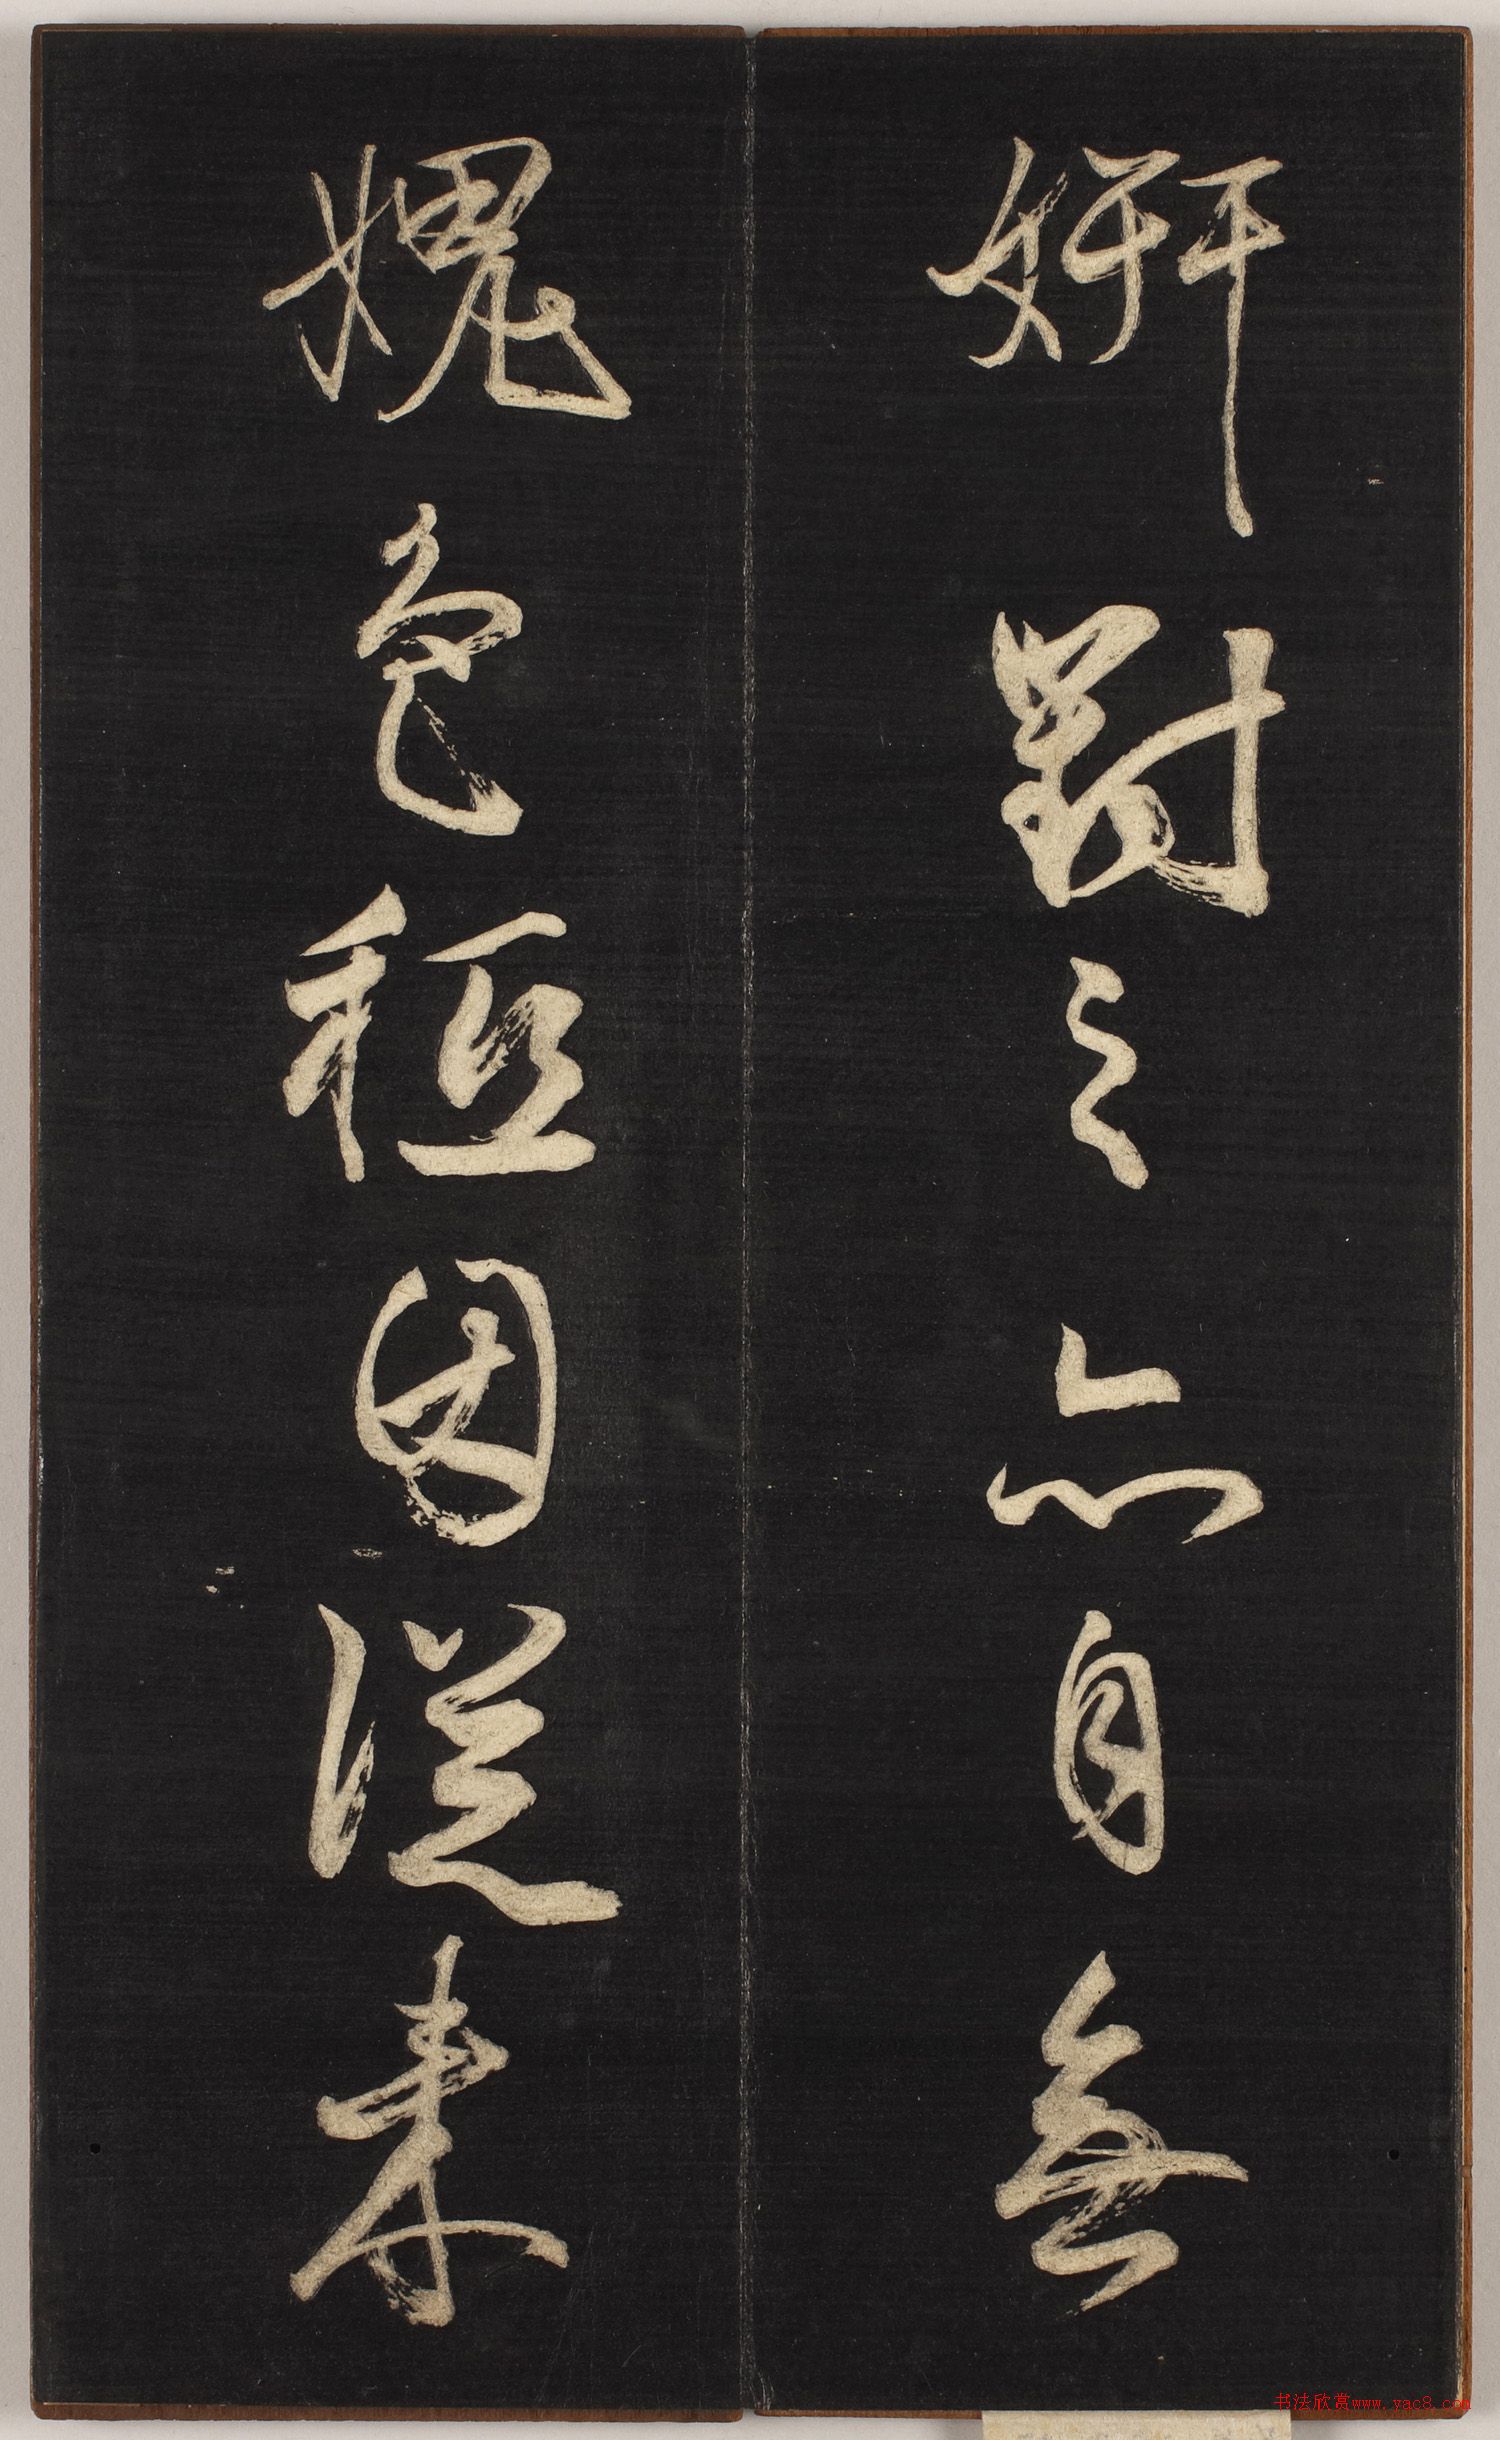 姸對之亦自無
媿色秪因從來
书法欣赏www.yac8.com